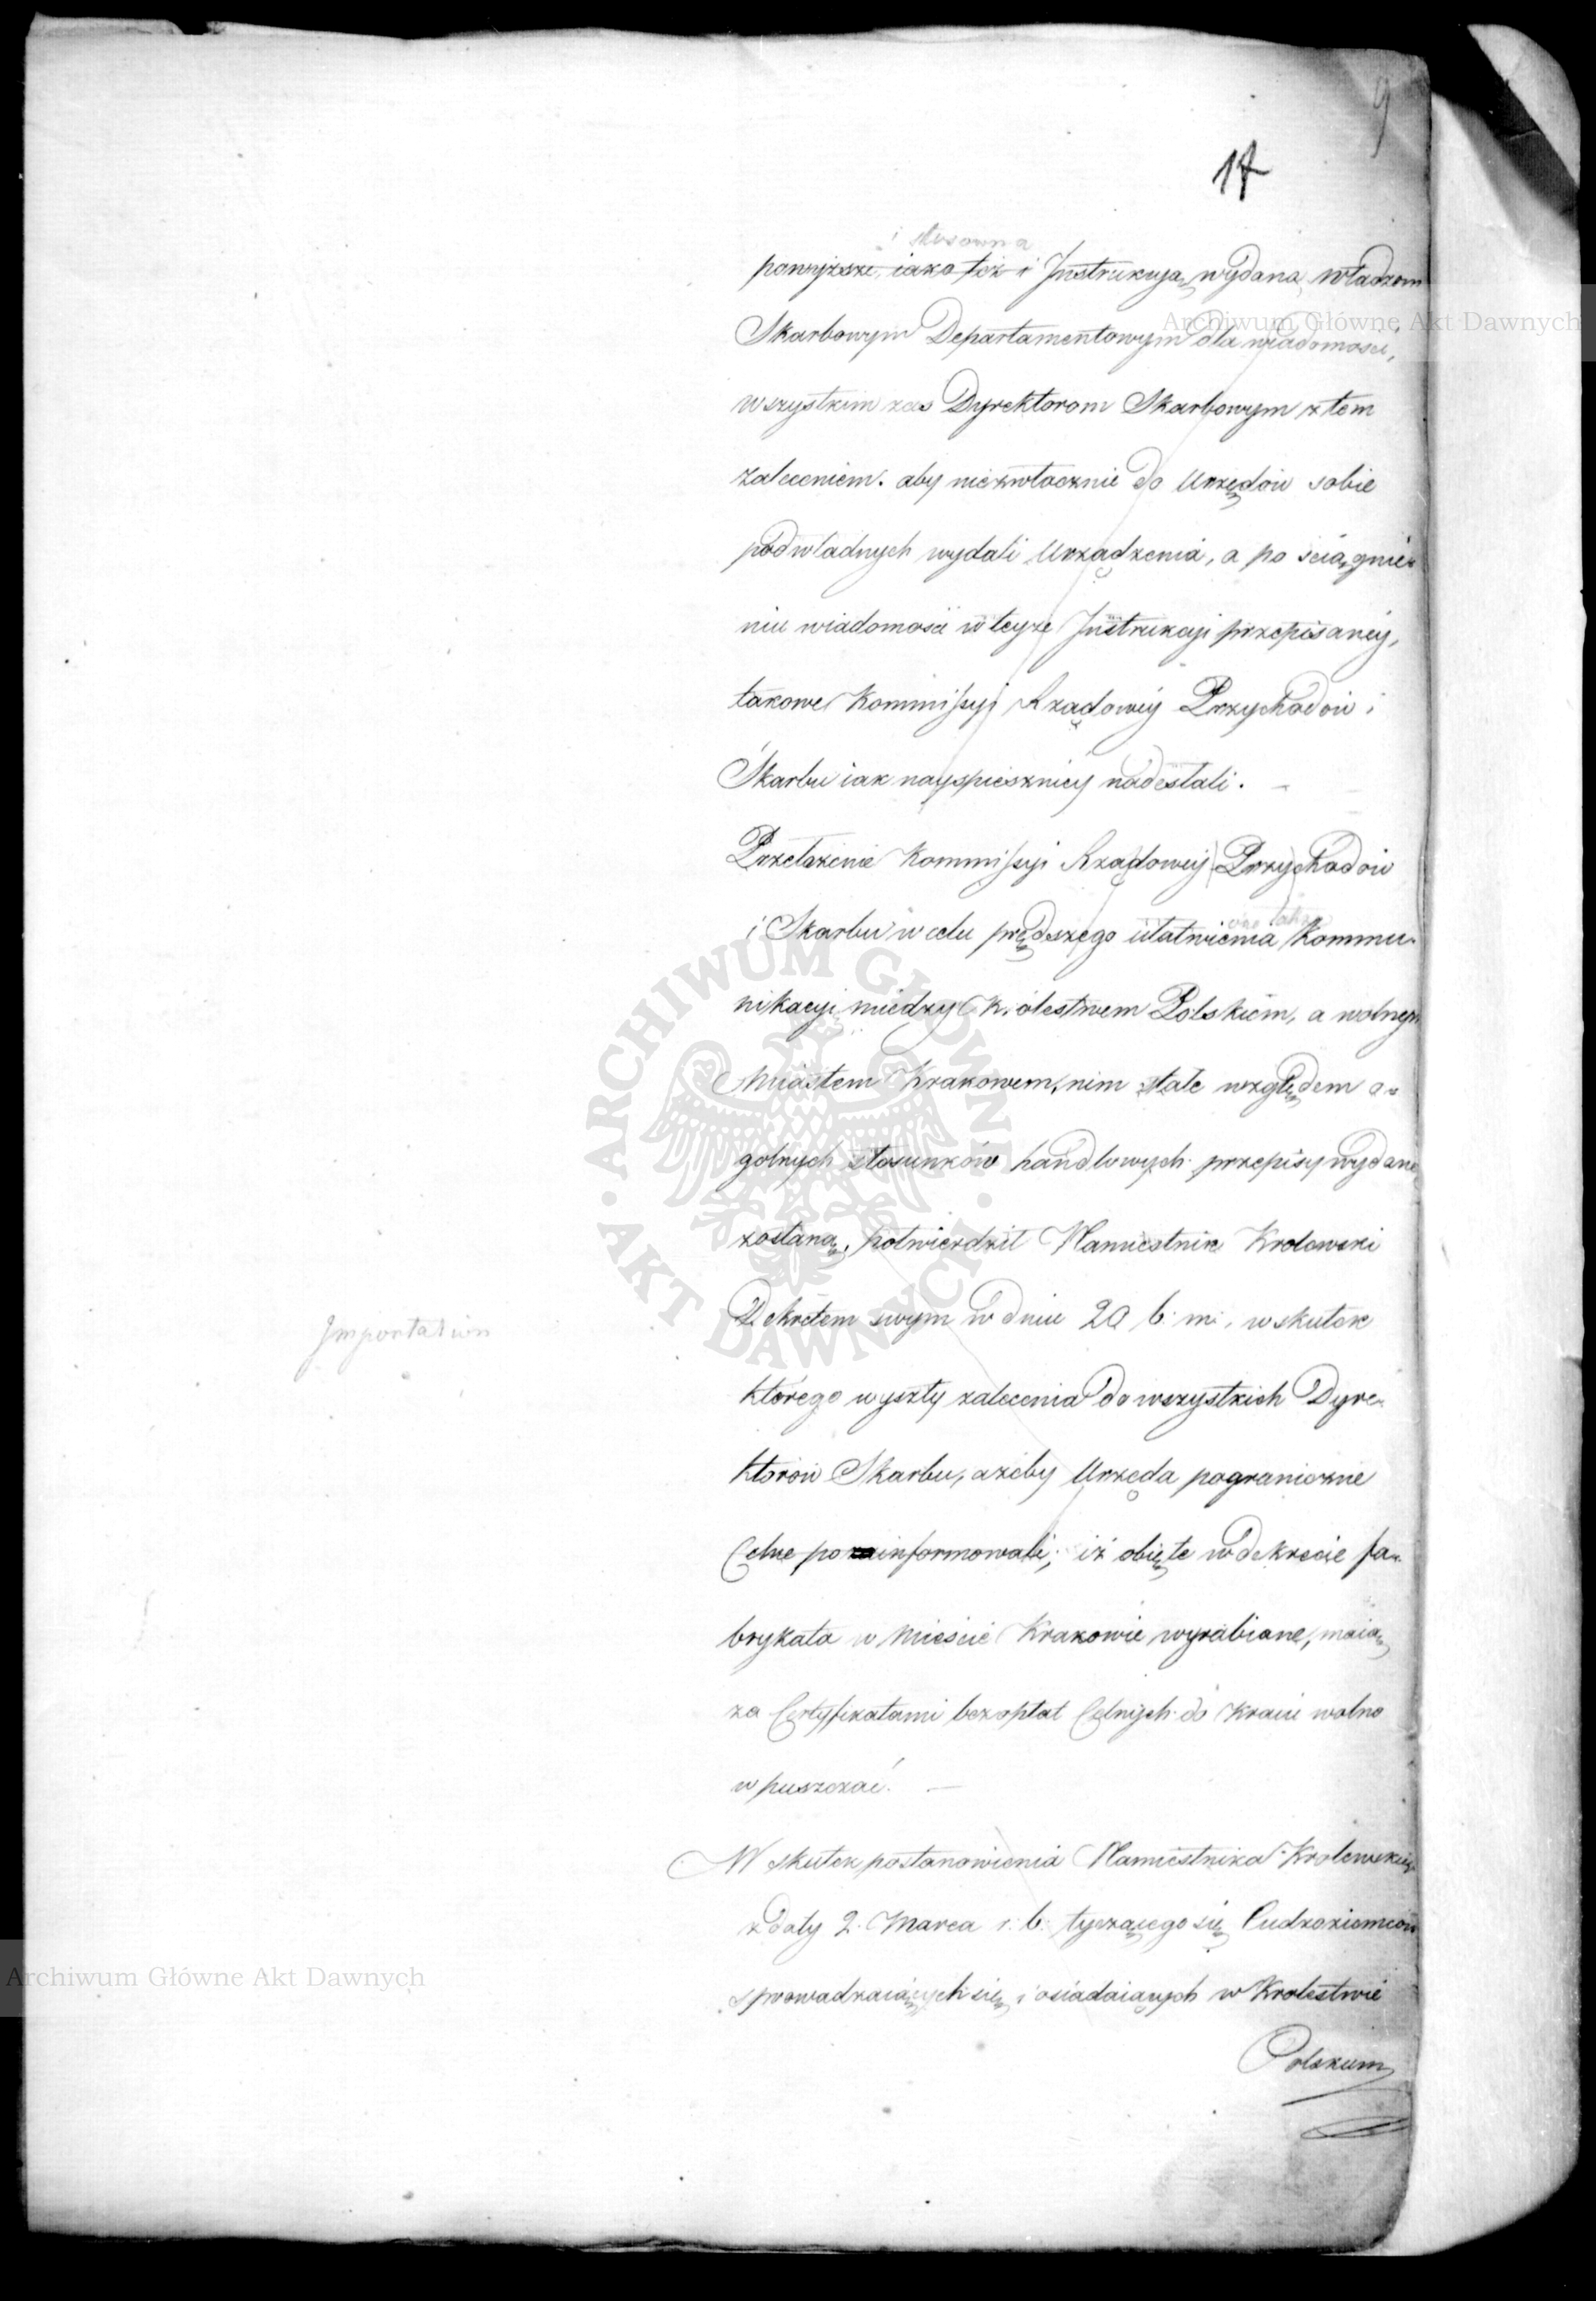 9
17
i stosowna
powyższe, iako też i Instrukcya, wydana Władzom
Skarbowym Departamentowym dla wiadomości,
wszystkim zaś Dyrektorom Skarbowym z tem
zaleceniem. aby niezwłocznie do Urzędów sobie
podwładnych wydali Urządzenia, a po ściągnie-
niu wiadomości w teyże Instrukcyi przepisaney,
takowe Kommissyi Rządowéy Przychodów i
Skarbu iak nayspieszniey nadesłali. –
Przełożenie Kommissyi Rządowéy Przychodów
i Skarbu w celu prędszego ułatwienia Kommu-
nikacyi między Królestwem Polskiém, a wolnym
Miastem Krakowem, nim stałe względem o-
golnych stosunków handlowych przepisy wydane
zostaną, potwierdził Namiestnik Krolewski
Dekretem swym w dniu 20 b. m., w skutek
którego wyszły zalecenia do wszystkich Dyre-
Importation
ktorów Skarbu, ażeby Urzęda pograniczne
Celne pozainformowali, iż obięte w dekrecie fa-
brykata w Mieście Krakowie wyrabiane, maią
za Certyfikatami bez opłat Celnych do Kraiu wolno
wpuszczać. —
W skutek postanowienia Namiestnika Krolewskiego
z daty 2. Marca r. b. tyczącego się Cudzoziemców
sprowadzaiących się i osiadaiących w Krolestwie
Polskiem
Archiwum Główne Akt Dawnych
Archiwum Główne Akt Dawnych
ARCHIWUM GŁÓWNE AKT DAWNYCH